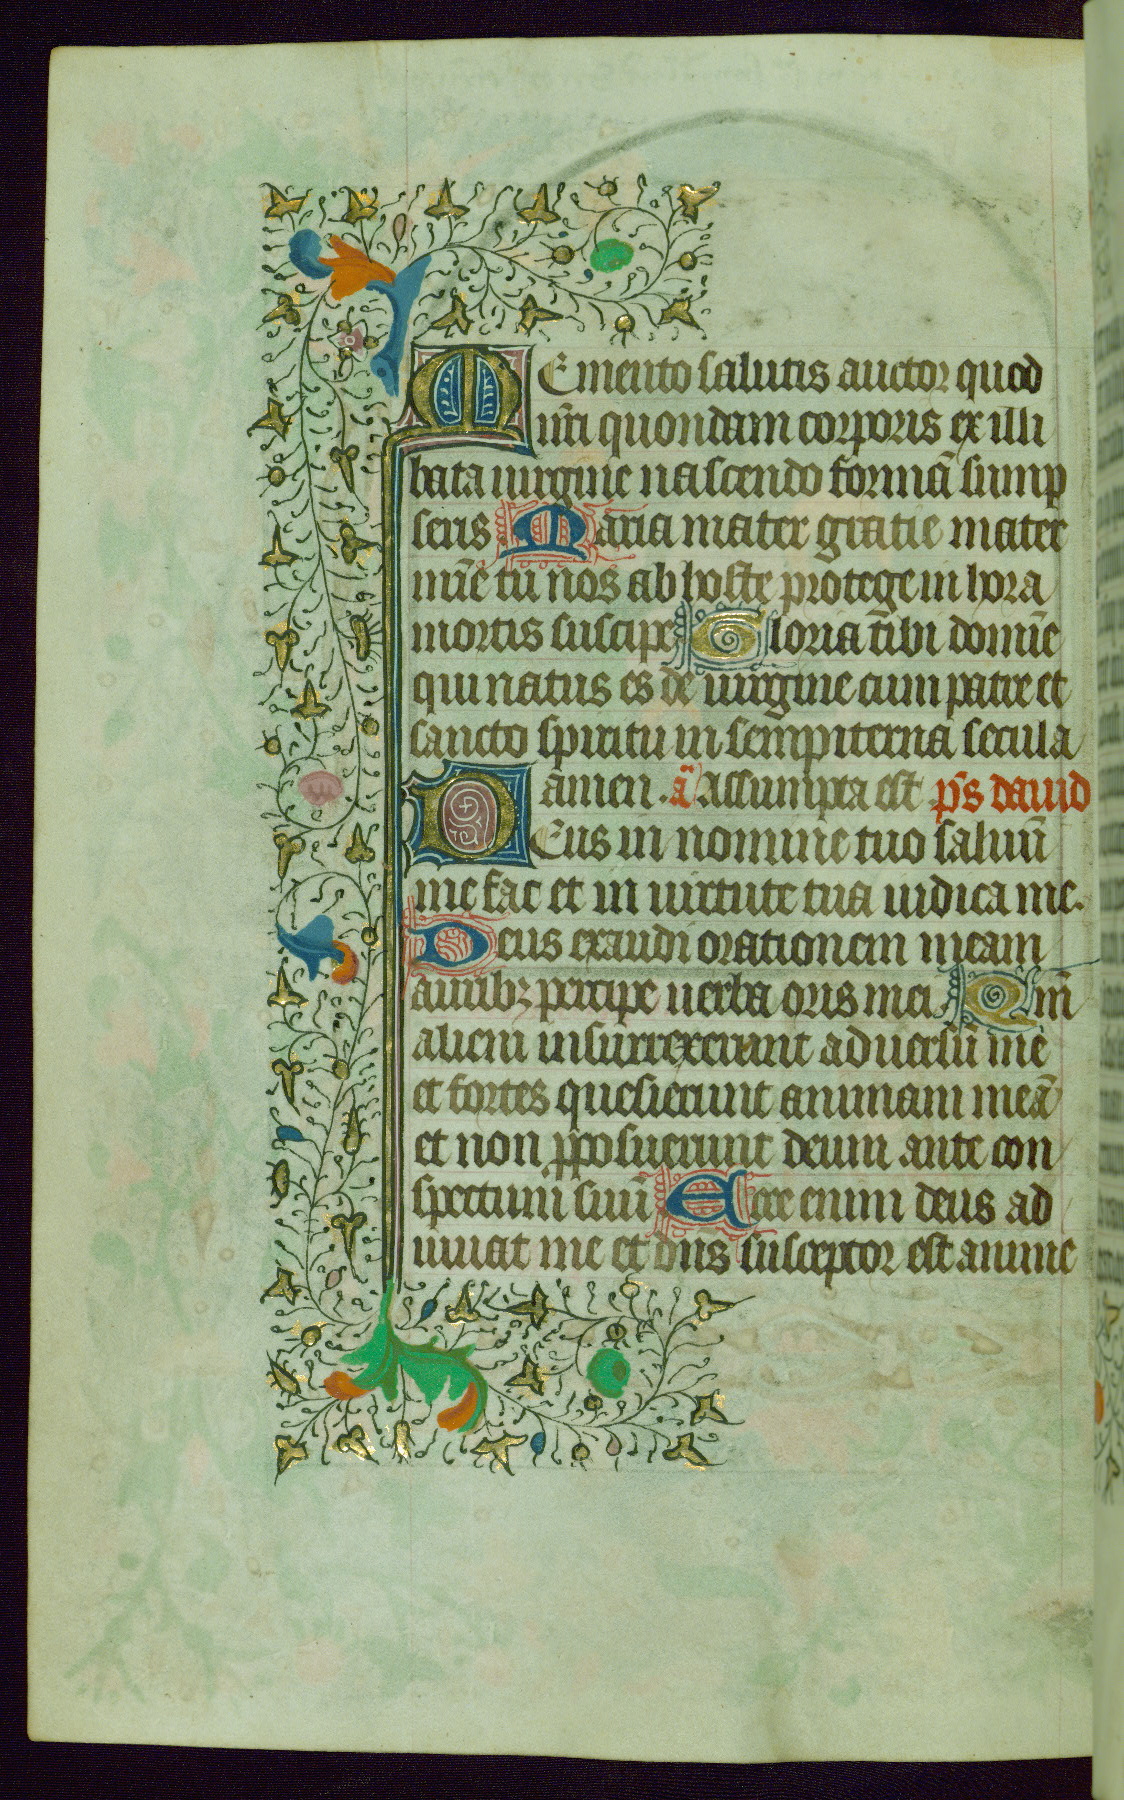 Memento salutis auctor quod
nr̄i quondam corporis ex illi
bata uirgine nascendo formā sump
seris Maria mater gratie mater
mīe tu nos ab hoste protege in hora
mortis suscipe Gloria tibi domīe
qui natus es de uirgine cum patre et
sancto spiritu in sempiterna secula
amen. ā Assumpta est p̄s dauid
Deus in nomine tuo saluū
me fac et in uirtute tua iudica me.
Deus exaudi orationem meam
auribꝫ percipe uerba oris mei Qm̄
alieni insurrexerunt aduersū me
et fortes quesierunt animam meā
et non ꝓposuerunt deum ante con
spectum suū Ecce enim deus ad
iuuat me et dn̄s susceptor est anime